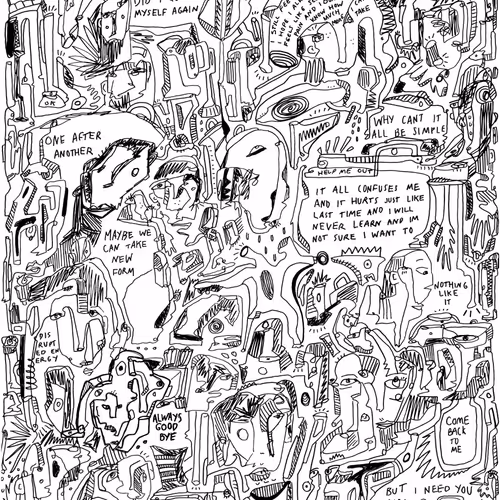 MYSELF AGAIN
STILL FEE
TAKE
ONE AFTER
ANOTHER
WHY CANT IT
ALL BE SIMPLE
HELP ME OUT
IT ALL CONFUSES ME
AND IT HURTS JUST LIKE
LAST TIME AND I WILL
NEVER LEARN AND IM
NOT SURE I WANT TO
MAYBE WE
CAN TAKE
NEW
FORM
NOTHING
LIKE
IT
DIS
RUPT
ED EN
ERGY
ALWAYS
GOOD
BYE
COME
BACK
TO
ME
BUT I NEED YOU